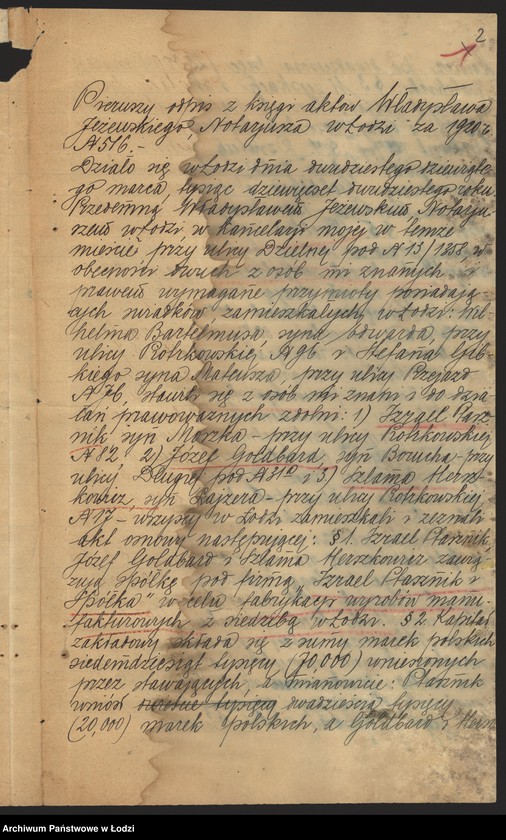 2
Pierwszy odpis z księgi aktów Władysława
Jeżewskiego Notarjusza w Łodzi za 1920 r.
N 576.-
Działo się w Łodzi dnia dwudziestego dziewiąte-
go marca tysiąc dziewięcset dwudziestego roku.
Przedemną Władysławem Jeżewskim Notarju-
szem w Łodzi w Kancelarji mojej w temże
mieście przy ulicy Dzielnej pod N 13/1368 w
obecności dwuch z osób mi znanych i
prawem wymagane przymioty posiadają-
cych świadków zamieszkałych w Łodzi: Wil-
helma Bartelmusa, syna Edwarda, przy
ulicy Piotrkowskiej N 96 i Stefana
syna Mateusza, przy ulicy Przejazd
N 76, stawili się z osób mi znani i do dzia-
łań prawoważnych zdolni: 1) Izrael Ptasz-
nik, syn Moszka - przy ulicy Piotrkowskiej
N 82 2) Józef Goldbard, syn Borucha - przy
ulicy Długiej pod N 31a i 3) Szlama Hersz-
kowicz, syn Lajzera - przy ulicy Piotrkowskiej
N 17 - wszyscy w Łodzi zamieszkali i zeznali
akt osnowy następującej: § 1. Izrael Ptasznik,
Józef Goldbard i Szlama Herszkowicz zawią-
zują spółkę pod firmą „Izrael Ptasznik i
Spółka" w celu fabrykacji wyrobów manu-
fakturowych z siedzibą w Łodzi. § 2. Kapitał
zakładowy składa się z sumy marek polskich
siedemdziesiąt tysięcy (70,000) wniesionych
przez stawających, a mianowicie: Ptasznik
wniósł dwadzieścia tysięcy
(20,000) marek polskich, a Goldbard i Hersz
Archiwum Państwowe w Łodzi